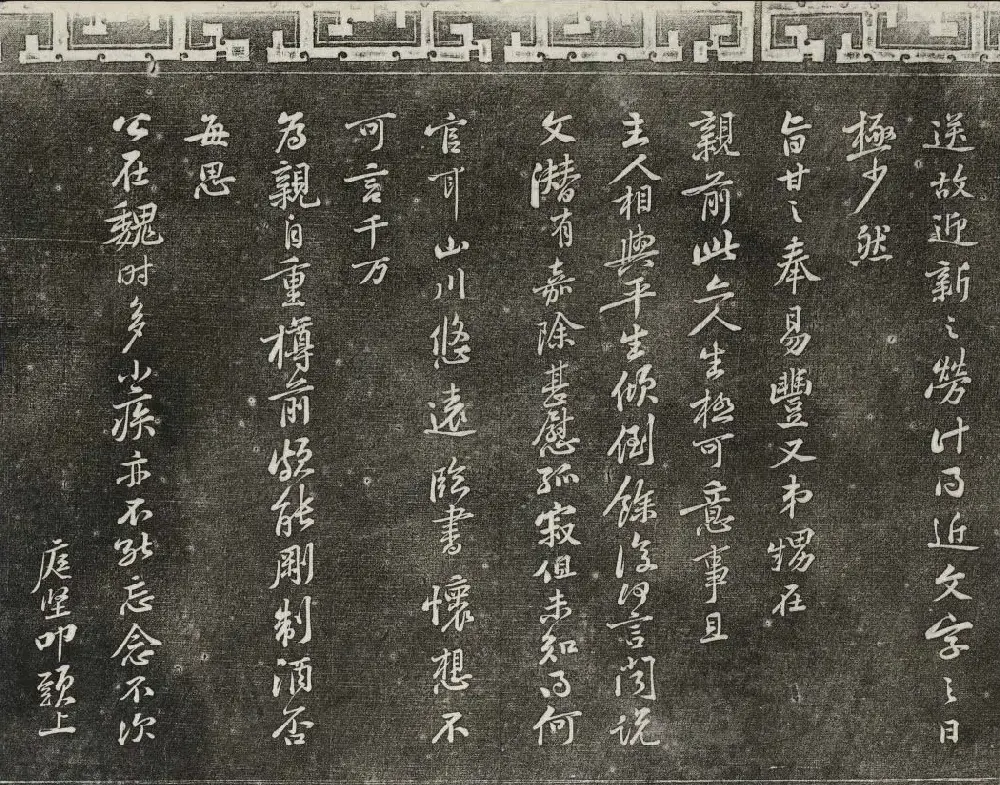 送故迎新之勞计得近文字之日
極少然
旨甘之奉易豐又弟甥在
親前此亦人生極可意事且
主人相與平生傾倒餘復何言聞说
文潜有嘉除甚慰孤寂但未知得何
官耳山川悠遠臨書懷想不
可言千万
為親自重樽前頗能剛制酒否
每思
公在魏时多小疾亦不能忘念不次
庭坚叩頭上